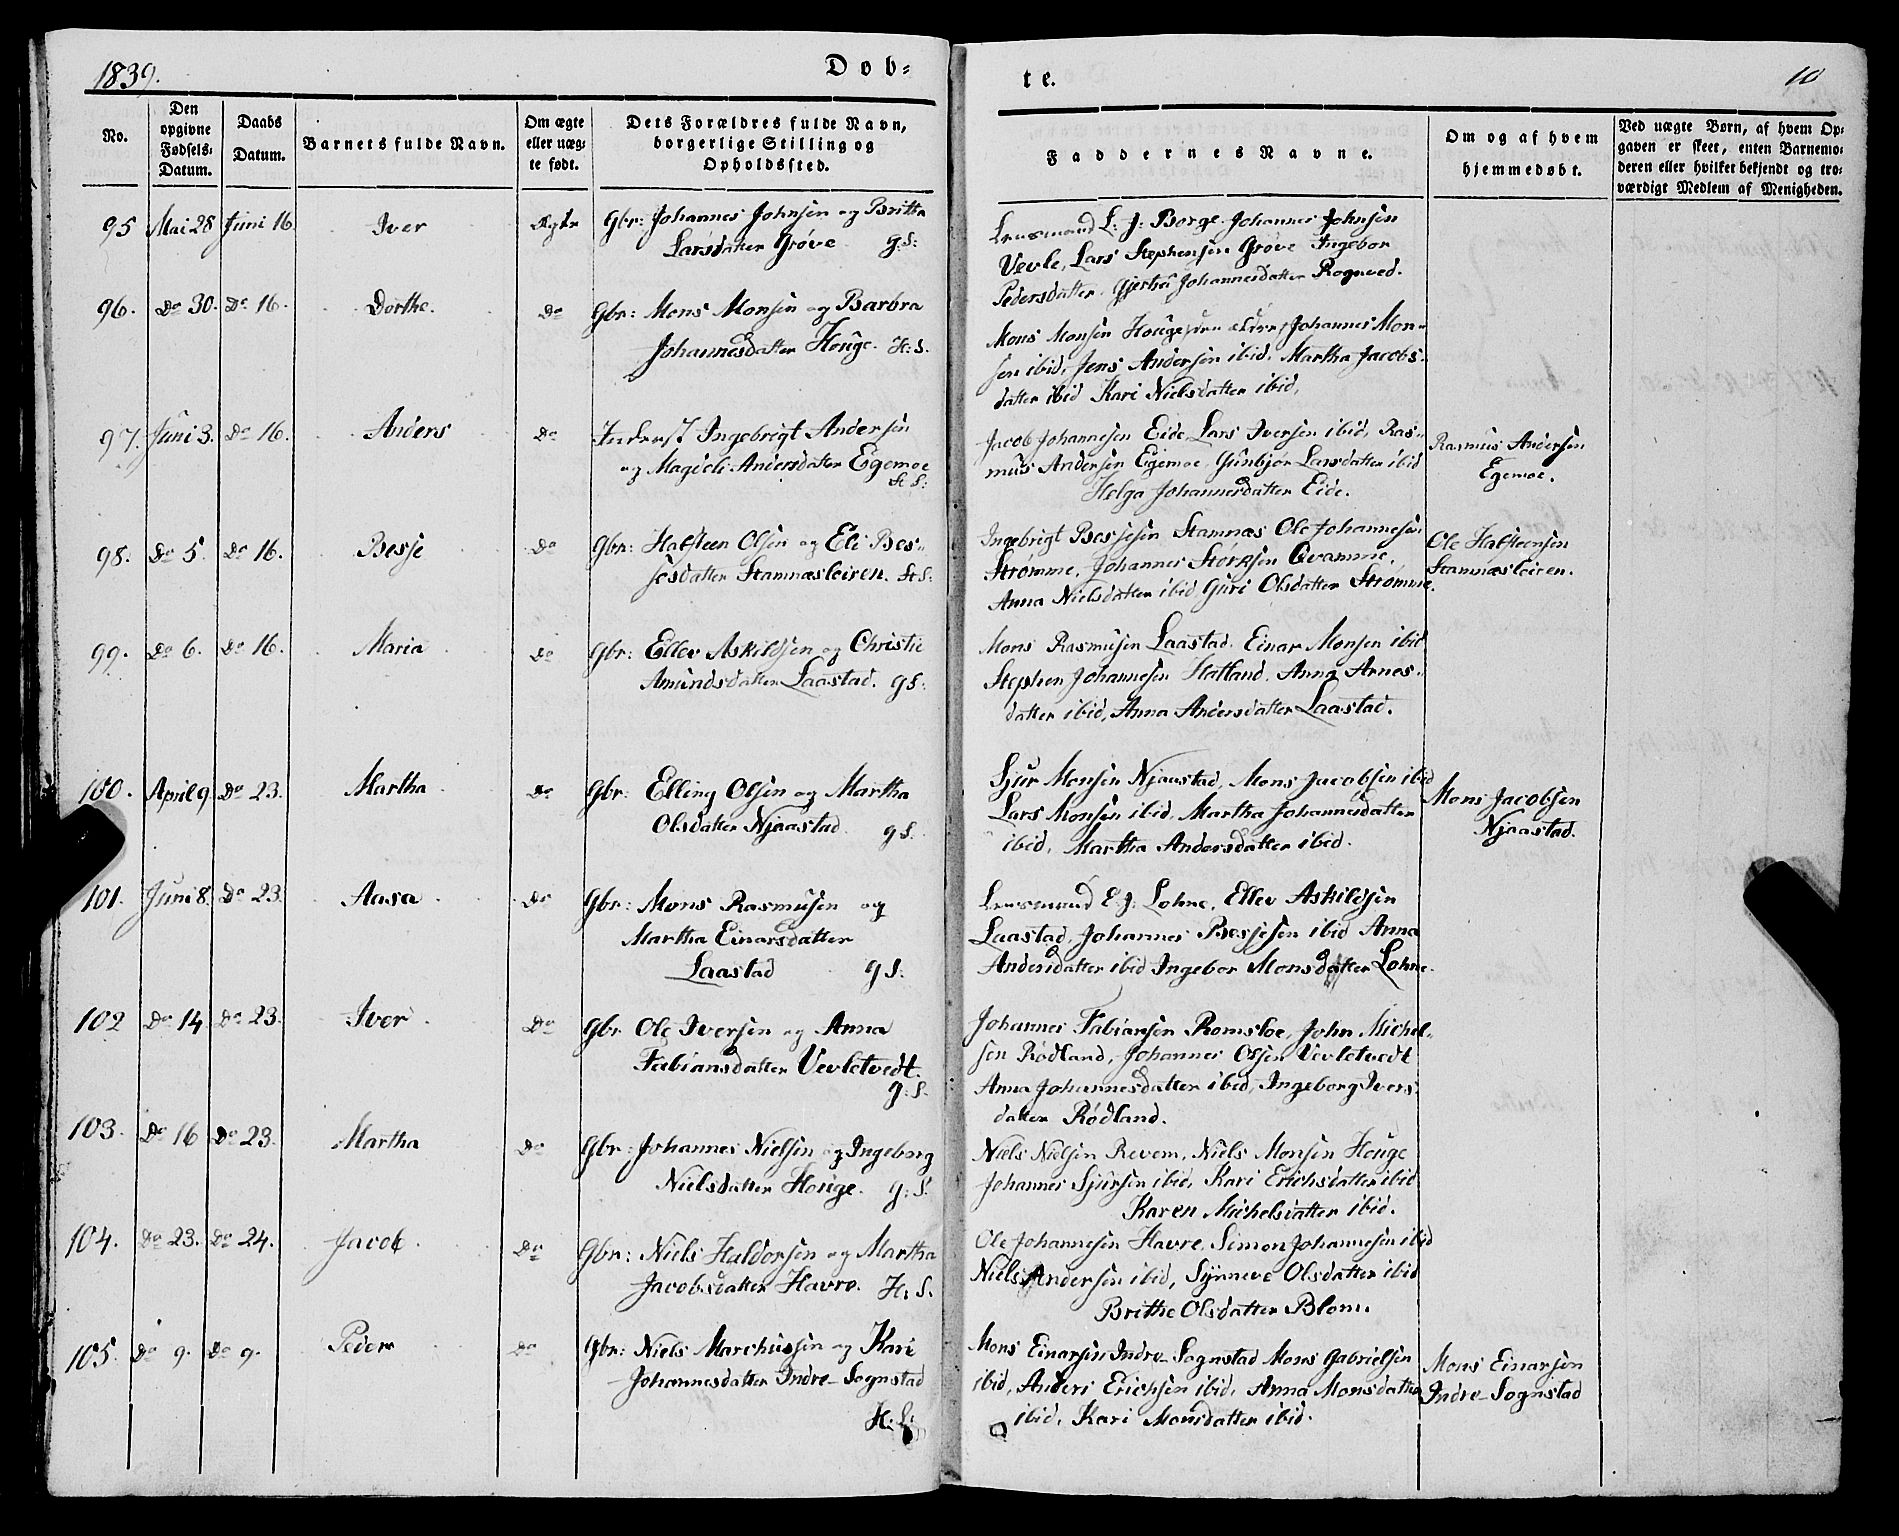 1839.
Dob-
No.
Den opgivne Fødsels-Datum.
Daabs Datum.
Barnets fulde Navn.
Om ægte eller uæg-te født.
Dets Forældres fulde Navn, borgerlige Stilling og Opholdssted.
95 Mai 28 Juni 16. Iver Ægte Gbr: Johannes Johnsen og Britta
Larsdatter Grøve g: S:
96. Do 30. Do 16. Dorthe. Do Gbr: Mons Monsen og Barbra
Johannesdatter Houge. H: S.
97. Juni 3. Do 16. Anders Do Inderst Ingebrigt Andersen
og Magdeli Andersdatter Egemoe
St S:
98. Do 5. Do 16. Besse Do Gbr: Halsteen Olsen og Eli Bes-
sesdatter Stamnæsleiren. St S:
99. Do 6. Do 16. Maria Do Gbr: Ellev Askildsen og Christie
Amundsdatter Laastad. g S:
100. April 9 Do 23. Martha Do Gbr: Elling Olsen og Martha
Olsdatter Njaastad. g S.
101. Juni 8. Do 23. Aasa Do Gbr: Mons Rasmusen og
Martha Einarsdatter
Laastad g S:
102 Do 14. Do 23. Iver Do Gbr Ole Iversen og Anna
Fabiansdatter Vevletvedt.
g: S.
103. Do 16 Do 23. Martha Do Gbr: Johannes Nielsen og Ingeborg
Nielsdatter Houge. g: S.
104. Do 23. Do 24. Jacob Do Gbr: Niels Haldorsen og Martha
Jacobsdatter Havre. H: S.
105. Do 9. Do 9. Peder Do Gbr: Niels Marchussen og Kari
Johannesdatter Indre-Sognstad
H: S:
te.
10
Faddernes Navne.
Om og af hvem hjemmedøbt.
Ved uægte Børn, af hvem Op-
gaven er skeet, enten Barnemo-
deren eller hvilket bekjendt og tro-
værdigt Medlem af Menigheden.
Lensmand L: J: Borge. Johannes Johnsen
Vevle, Lars Stephensen Grøve Ingebor
Pedersdatter. Gjertru Johannesdatter Rogneved.
Mons Monsen Houge, den ældre, Johannes Mon-
sen ibid, Jens Andersen ibid. Martha Jacobs-
datter ibid Kari Nielsdatter ibid,
Jacob Johannesen Eide, Lars Iversen ibid, Ras-
mus Andersen Egemoe, Gunbjør Larsdatter ibid
Helga Johannesdatter Eide.
Rasmus Andersen
Egemoe.
Ingebrigt Bessesen Stamnæs Ole Johannesen
Strømme, Johannes Størksen Qvamme,
Anna Nielsdatter ibid, Guri Olsdatter Strømme.
Ole Halsteensen
Stamnæsleiren.
Mons Rasmusen Laastad. Einar Monsen ibid
Stephen Johannesen Hatland. Anna Arnes-
datter ibid, Anna Andersdatter Laastad.
Sjur Monsen Njaastad, Mons Jacobsen ibid
Lars Monsen ibid, Martha Johannesdatter
ibid, Martha Andersdatter ibid.
Mons Jacobsen
Njaastad.
Lensmand E: J: Lohne, Ellev Askildsen
Laastad, Johannes Bessesen ibid Anna
Andersdatter ibid Ingebor Monsdatter Lohne.
Johannes Fabiansen Romsloe, John Michel-
sen Rødland, Johannes Olsen Vevletvedt
Anna Johannesdatter ibid, Ingeborg Ivers-
datter Rødland.
Niels Nielsen Revem, Niels Monsen Houge
Johannes Sjursen ibid, Kari Erichsdatter ibid
Karen Michelsdatter ibid.
Ole Johannesen Havre, Simon Johannesen ibid
Niels Andersen ibid, Synneve Olsdatter ibid
Brithe Olsdatter Blom.
Mons Einarsen Indre-Sognstad Mons Gabrielsen
ibid, Anders Erichsen ibid, Anna Monsdatter
ibid, Kari Monsdatter ibid.
Mons Einarsen
Indre-Sognstad